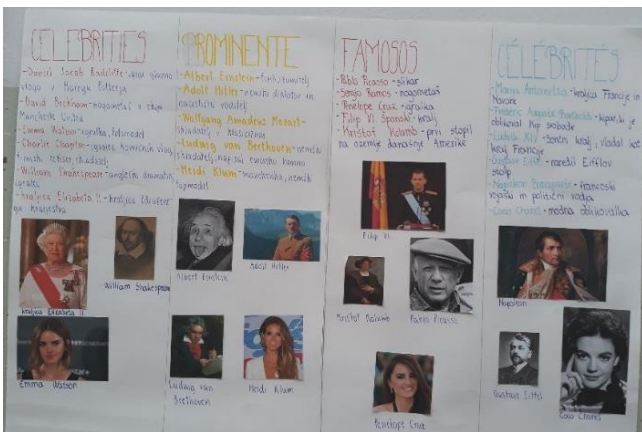 CELEBRITIES
-Daniel Jacob Radcliffe-igral glavno
vlogo v Harryju Potterju
-David Beckham-nogometaš v ekipi
Manchester United
-Emma Watson-igralka, fotomodel
-Charlie Chaplin-igralec komičnih vlog,
filmski režiser, skladatelj
-William Shakespeare-angleški dramatik,
igralec
-kraljica Elizabeta II-kraljica Združene
ga kraljestva
kraljica Elizabeta II
William Shakespeare
Emma Watson
PROMINENTE
-Albert Einstein-
-Adolf Hitler-nemški diktator in
nacistični voditelj
-Wolfgang Amadeus Mozart-
skladatelj v klasicizmu
-Ludwig van Beethoven-nemški
skladatelj, napisal evropsko himno
-Heidi Klum-manekenka, nemški
topmodel
Albert Einstein
Adolf Hitler
Ludwig van
Beethoven
Heidi Klum
FAMOSOS
-Pablo Picasso-slikar
-Sergio Ramos-nogometaš
-Penelope Cruz-igralka
-Filip VI. Španski-kralj
-Krištof Kolumb-prvi stopil
na ozemlje današnje Amerike
Filip VI
Krištof Kolumb
Pablo Picasso
Penelope Cruz
CÉLÉBRITÉS
-kraljica Francije in
Navare
-Frederic Auguste Bartholdi-kipar, ki je
oblikoval kip svobode
-Ludvik XIV-Sončni kralj, vladal kot
kralj Francije
-Gustave Eiffel-naredil Eifflov
stolp
-Napoleon Bonaparte-francoski
vojaški in politični vodja
-Coco Chanel-modna oblikovalka
Napoleon
Gustave Eiffel
Coco Chanel